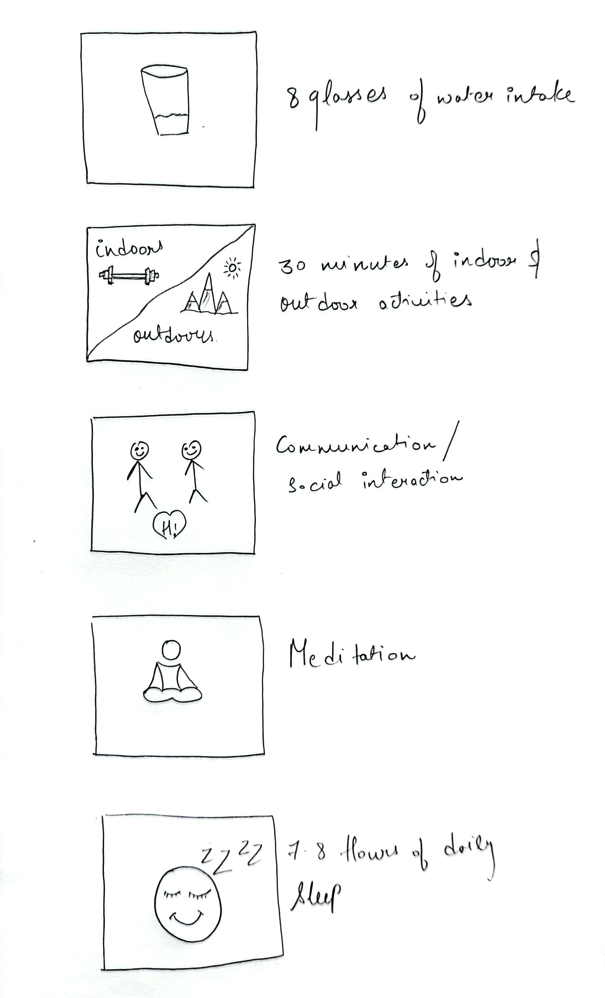 8 glasses of water intake
indoors
outdoors
30 minutes of indoor &
outdoor activities
Communication/
Social interaction
Hi!
Meditation
zzzz
7-8 Hours of daily
Sleep